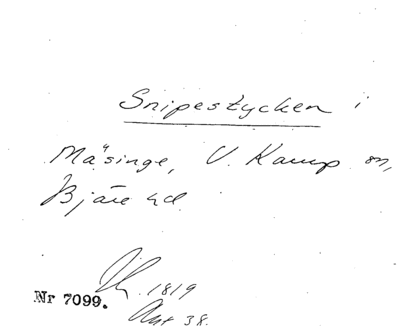 Snipestycken i
Mäsinge, V. Karup sn,
Bjäre hd
1819
Nr 7099.
Ant 38.